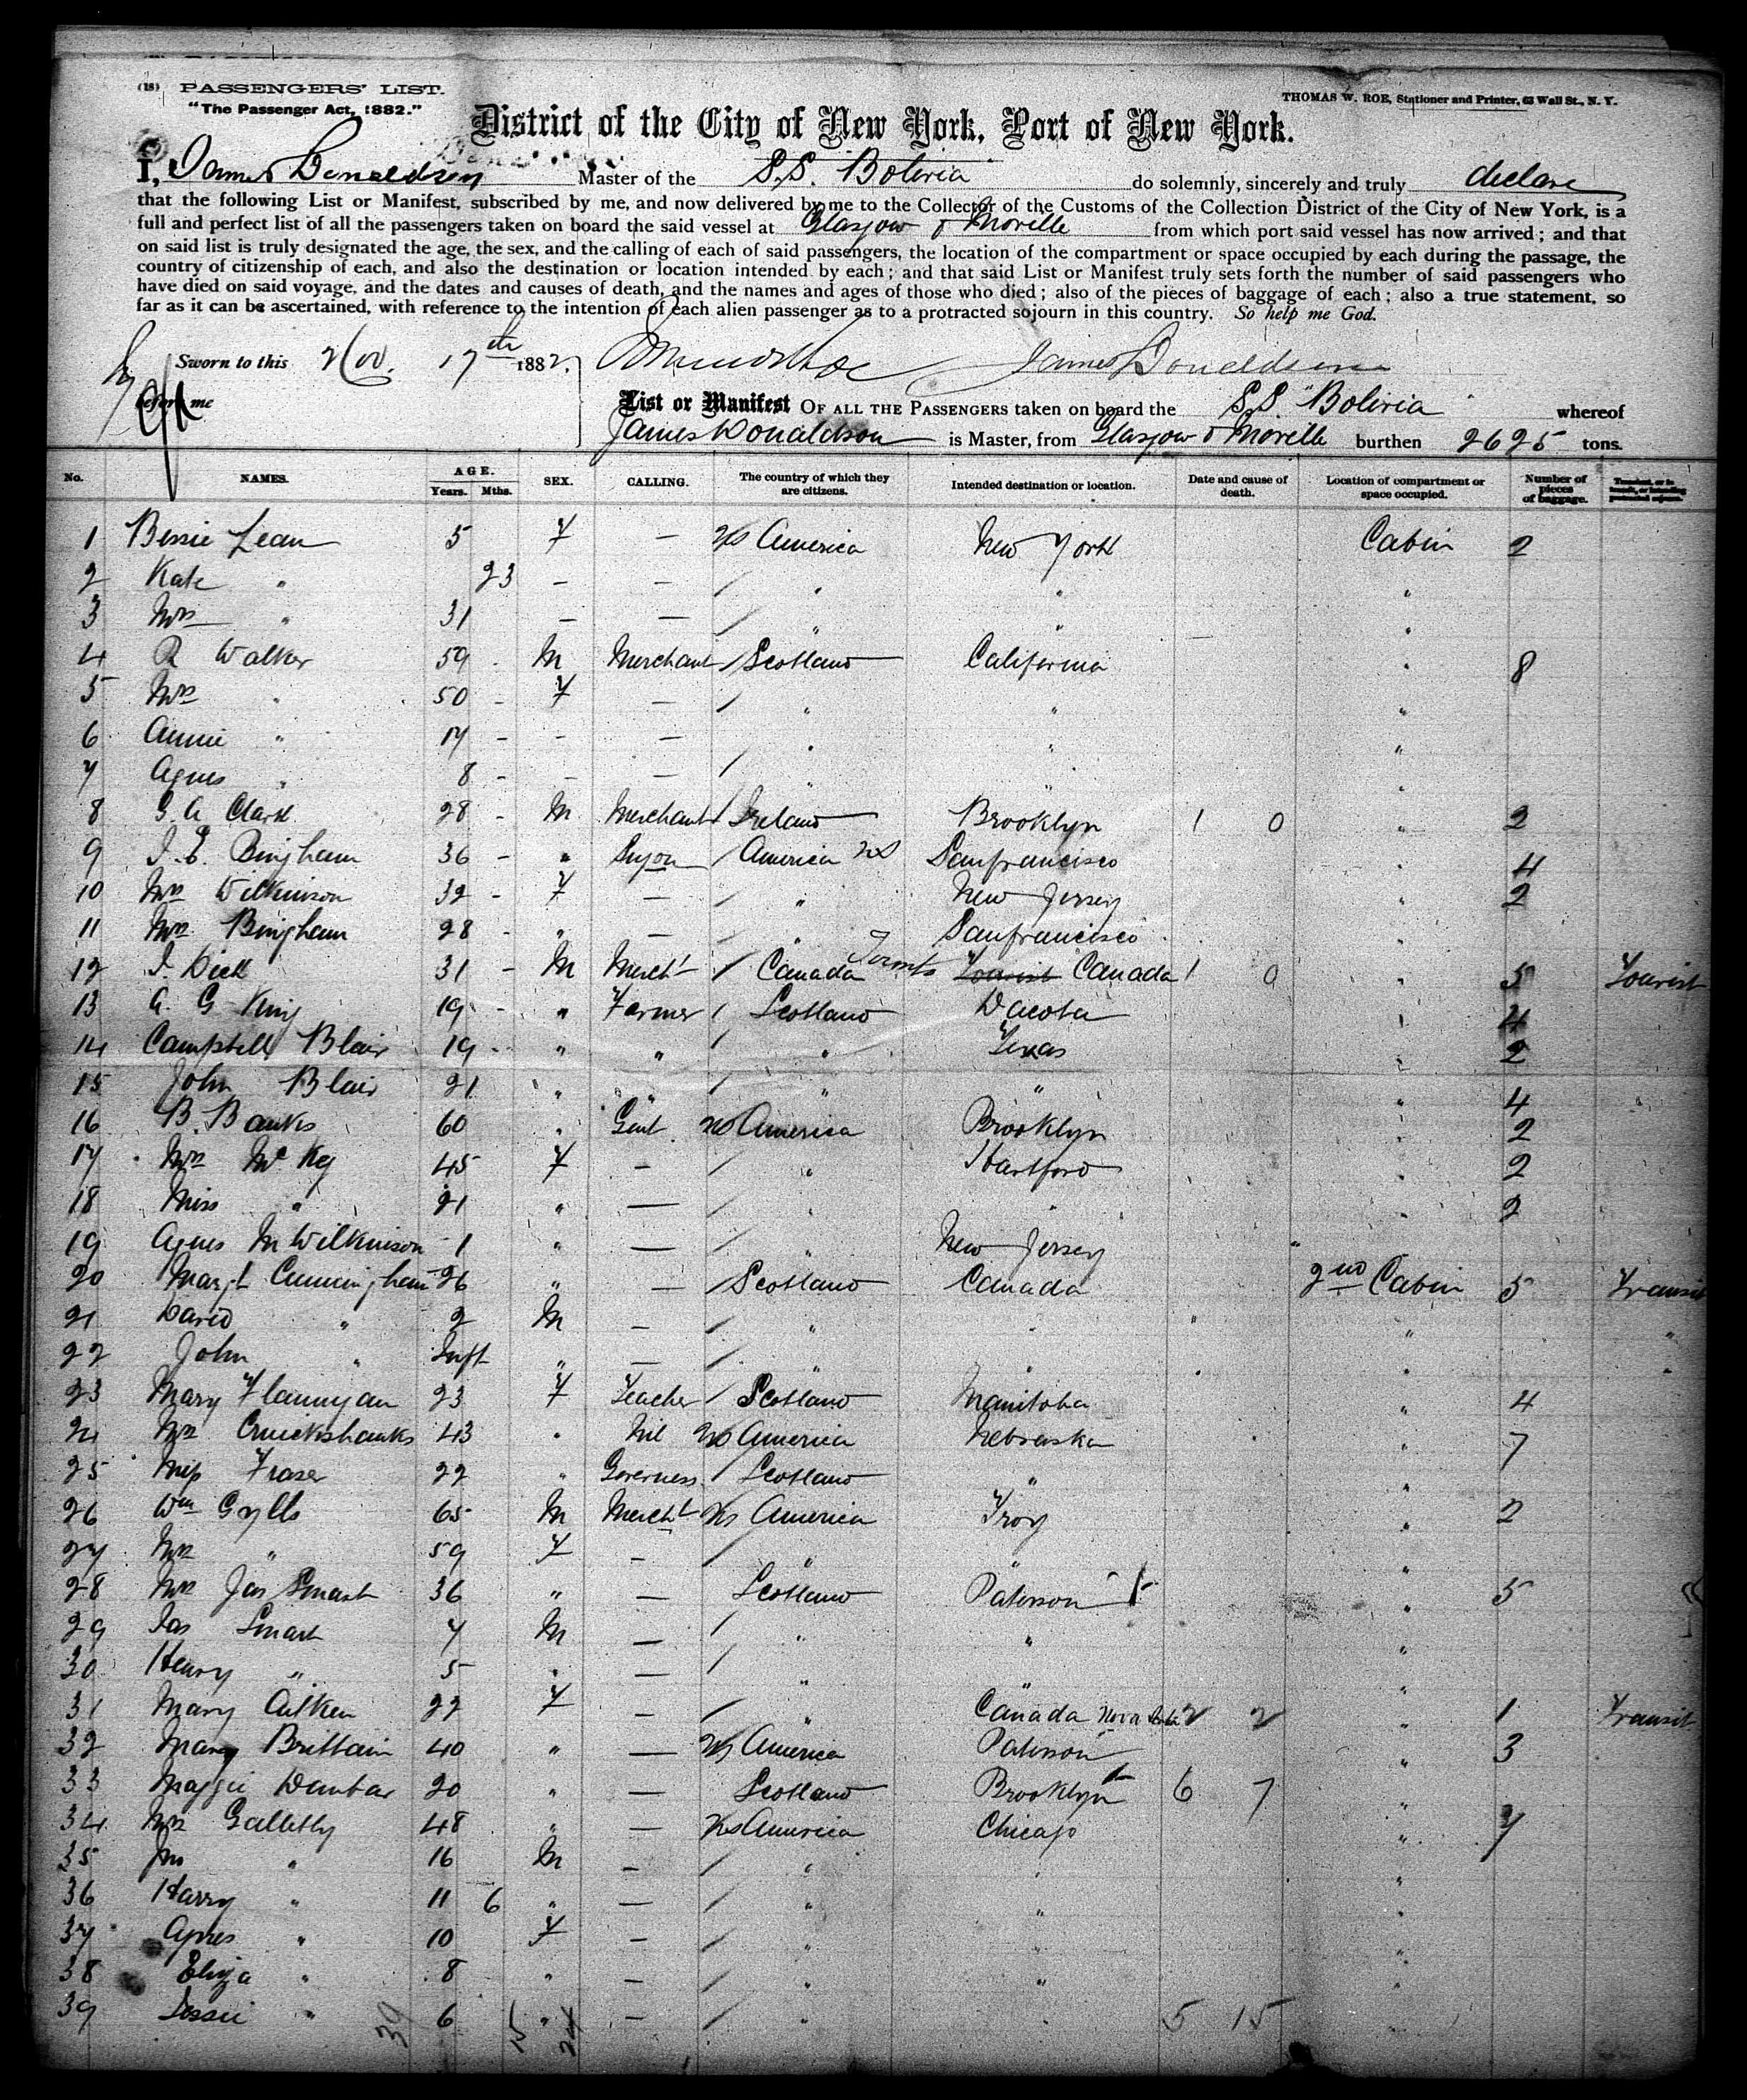 (18) PASSENGERS' LIST.
"The Passenger Act, 1882."
THOMAS W. ROE, Stationer and Printer, 63 Wall St., N. Y.
District of the City of New York, Port of New York.
I, James Donaldson Master of the S.S. Bolivia do solemnly, sincerely and truly declare
that the following List or Manifest, subscribed by me, and now delivered by me to the Collector of the Customs of the Collection District of the City of New York, is a
full and perfect list of all the passengers taken on board the said vessel at Glasgow & Moville from which port said vessel has now arrived; and that
on said list is truly designated the age, the sex, and the calling of each of said passengers, the location of the compartment or space occupied by each during the passage, the
country of citizenship of each, and also the destination or location intended by each; and that said List or Manifest truly sets forth the number of said passengers who
have died on said voyage, and the dates and causes of death, and the names and ages of those who died; also of the pieces of baggage of each; also a true statement, so
far as it can be ascertained, with reference to the intention of each alien passenger as to a protracted sojourn in this country. So help me God.
Sworn to this Nov. 17th 1882. James Donaldson
before me
List or Manifest OF ALL THE PASSENGERS taken on board the S.S. "Bolivia" whereof
James Donaldson is Master, from Glasgow & Moville burthen 2625 tons.
No. NAMES. AGE. Years. Mths. SEX. CALLING. The country of which they are citizens. Intended destination or location. Date and cause of death. Location of compartment or space occupied. Number of pieces of baggage.
1 Bessie Lean 5 F — US America New York Cabin 2
2 Kate " 23 — — / " " "
3 Mrs " 31 — — / " " "
4 R Walker 59 - M Merchant / Scotland California " 8
5 Mrs " 50 - F — / " " "
6 Annie " 17 - - — " " "
7 Agnes " 8 - - — / " " "
8 G. A Clark 28 - M Merchant / Ireland Brooklyn 1 0 " 2
9 J. E. Bingham 36 - " / America US Sanfrancisco " 4
10 Mrs Wilkinson 32 - F — / " New Jersey " 2
11 Mrs Bingham 28 - " — " Sanfrancisco "
12 J. Dick 31 - M Mercht / Canada Toronto Tourist Canada 1 0 " 5 Tourist
13 A. G King 19 - " Farmer / Scotland Dacota " 4
14 Campbell Blair 19 - " " / " Texas " 2
15 John Blair 21 " " / " " " 4
16 B. Banks 60 " Gent US America Brooklyn " 2
17 Mrs McKey 45 F — / " Hartford " 2
18 Miss " 21 " — / " " " 2
19 Agnes M Wilkinson 1 " — / " New Jersey "
20 Margt Cunningham 26 " — Scotland Canada 2nd Cabin 5 Transit
21 David " 2 M — / " " " "
22 John " Inft " — / " " " "
23 Mary Flannigan 23 F Teacher / Scotland Manitoba " 4
24 Mrs Cruickshanks 43 " Nil US America Nebraska " 7
25 Miss Fraser 22 " Governess / Scotland " "
26 Wm Gylls 65 M Mercht US America Troy " 2
27 Mrs " 59 F — / " " "
28 Mrs Jas Smart 36 " — Scotland Paterson " 5
29 Jas Smart 7 M — / " " "
30 Henry " 5 " — / " "
31 Mary Aitken 22 F — / " Canada Nova Scotia 2 2 " 1 Transit
32 Mary Brittain 40 " — US America Paterson " 3
33 Maggie Dunbar 20 " — Scotland Brooklyn 6 7 "
34 Mrs Galletly 48 " — US America Chicago " 7
35 Jno " 16 M — / " " "
36 Harry " 11 6 " — / " " "
37 Agnes " 10 F — / "
38 Eliza " 8 " — / " "
39 Jessie " 6 " — / " 5 15
39 15 24